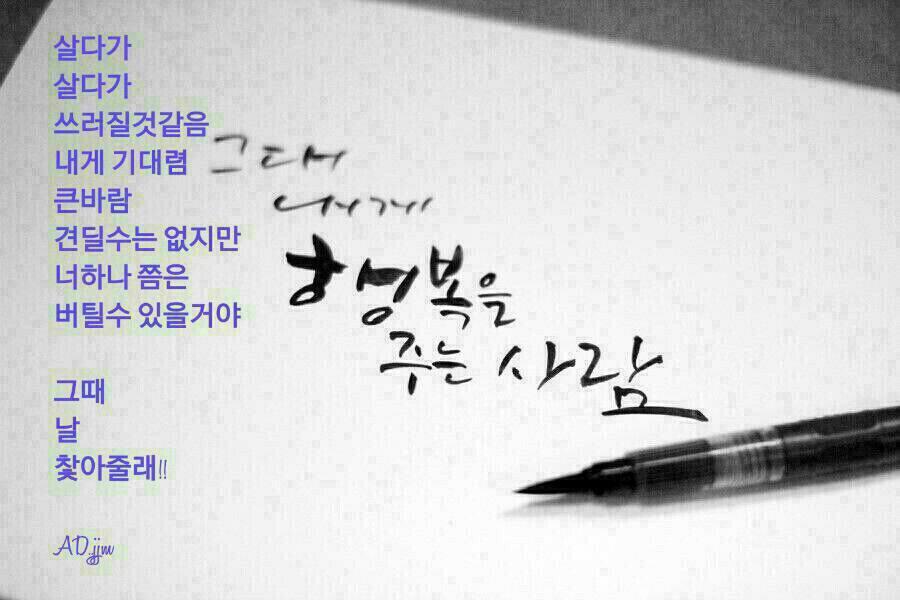 살다가
살다가
쓰러질것같음
내게 기대렴
큰바람
견딜수는 없지만
너하나 쯤은
버틸수 있을거야
그때
날
찿아줄래!!
AD.jjm
그대
내게
행복을
주는 사람